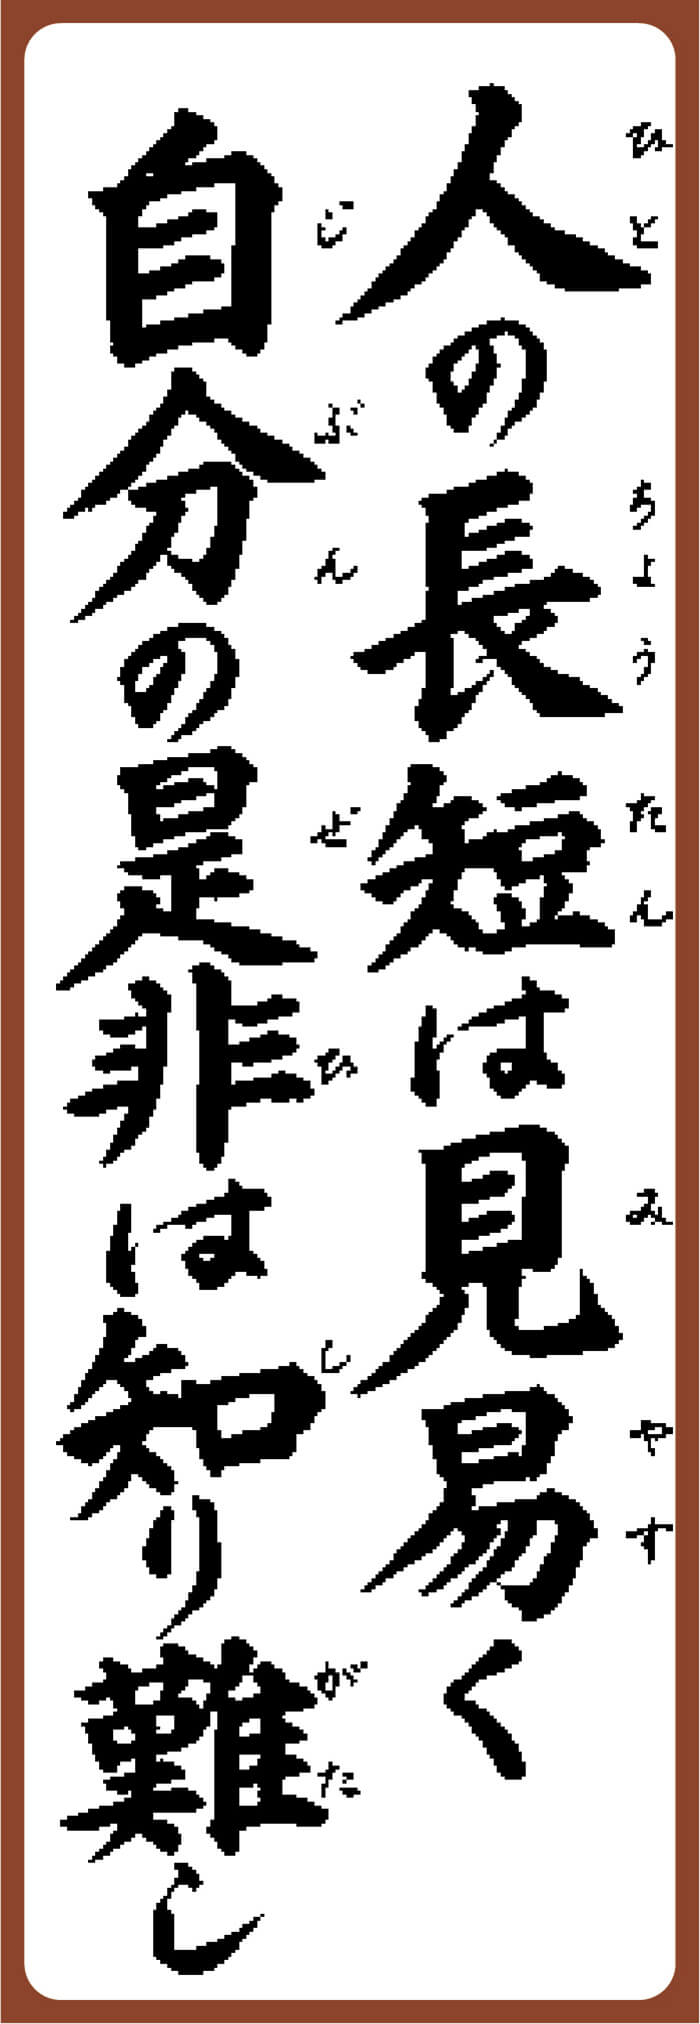 人の長短は見易く
ひと ちょうたん み やす
自分の是非は知り難し
じぶん ぜひ し がた